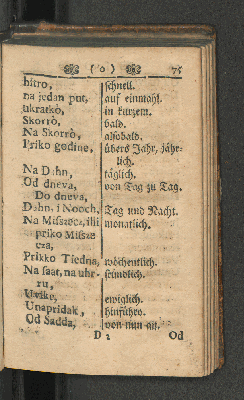 ( o ) 75
hitro, schnell.
na jedan put, auf einmahl.
ukratkò, in kurzem.
Skorrò, bald.
Na Skorrò, alsobald.
Priko godine, übers Jahr, jähr-
lich.
Na Dahn, täglich.
Od dneva, von Tag zu Tag.
Do dneva,
Dahn, i Nooch, Tag und Nacht.
Na Miszecz, illi monatlich.
priko Misze
cza,
Prikko Tiedna, wöchentlich.
Na saat, na uhr- stündlich.
ru,
Uvike, ewiglich.
Unapridak, hinführo.
Od Sadda, von nun an.
D 2 Od